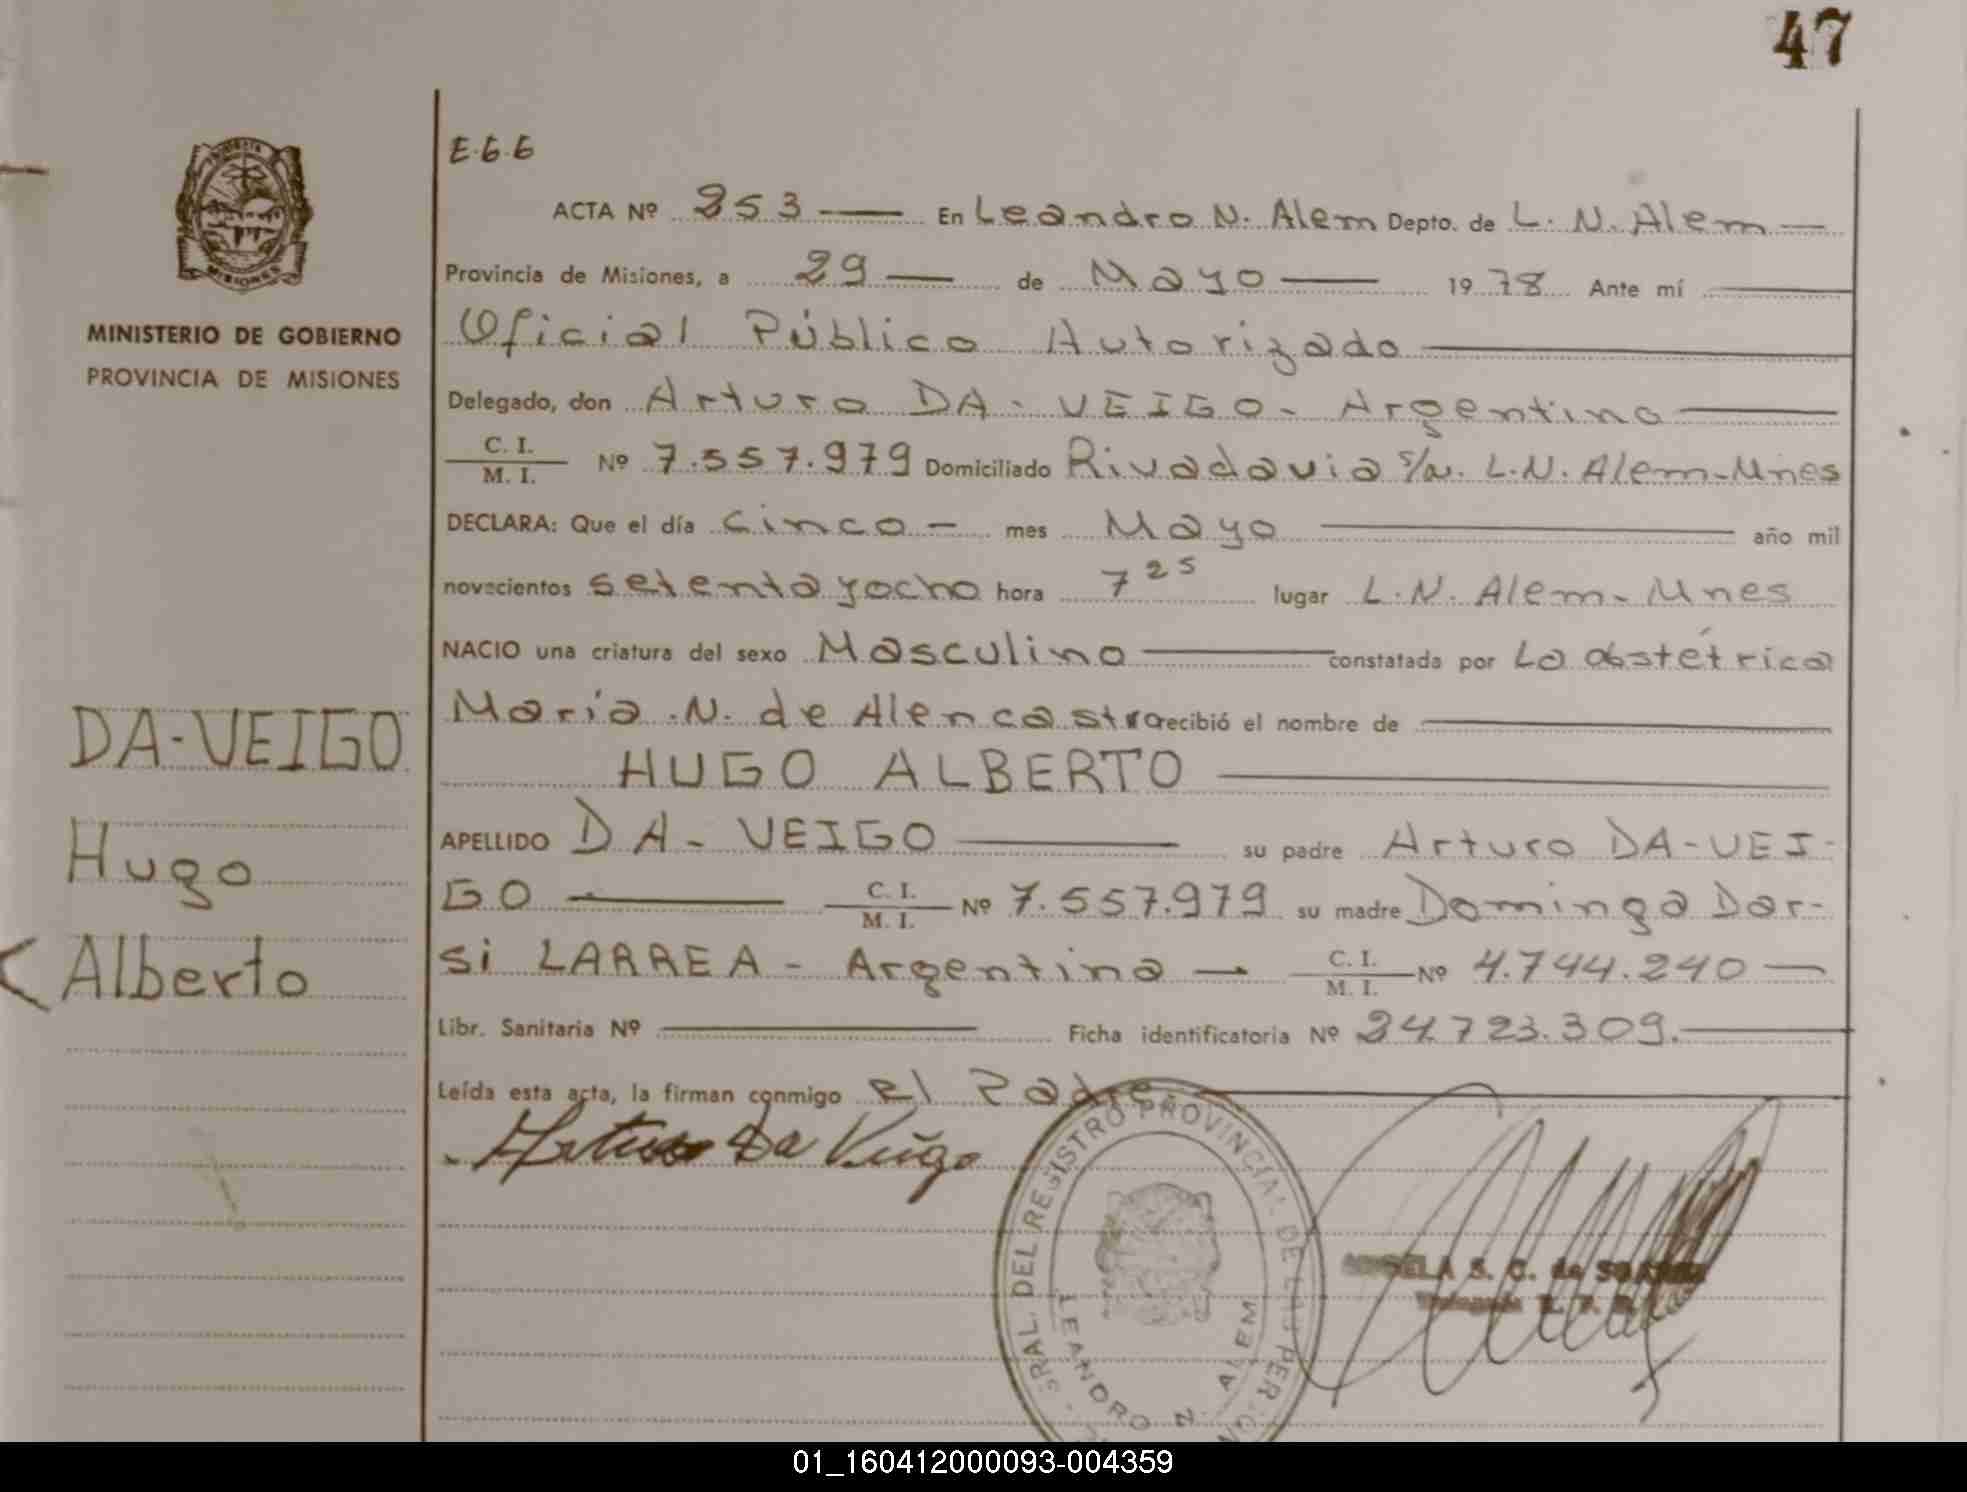 47
E.G.G
ACTA Nº 253 En Leandro N. Alem Depto. de L. N. Alem
Provincia de Misiones, a 29 de Mayo 1978 Ante mí
MINISTERIO DE GOBIERNO
PROVINCIA DE MISIONES
Oficial Público Autorizado
Delegado, don Arturo DA-VEIGO- Argentino
C. I.
M. I. Nº 7.557.979 Domiciliado Rivadavia s/n. L.N. Alem-Mnes
DECLARA: Que el día cinco - mes Mayo año mil
novecientos setenta y ocho hora 7 25 lugar L.N. Alem-Mnes
NACIO una criatura del sexo Masculino constatada por La obstétrica
María N. de Alencastro recibió el nombre de
HUGO ALBERTO
DA-VEIGO
Hugo
Alberto
APELLIDO DA-VEIGO su padre Arturo DA-VEI-
GO C. I. M. I. Nº 7.557.979 su madre Dominga Dar-
si LARREA - Argentina - C. I. M. I. Nº 4.744.240
Libr. Sanitaria Nº Ficha identificatoria Nº 24.723.309.
Leída esta acta, la firman conmigo el Padre
Arturo Da Veigo
GRAL. DEL REGISTRO PROVINCIAL DE LAS PER
LEANDRO N. ALEM
S. C. de
01_160412000093-004359